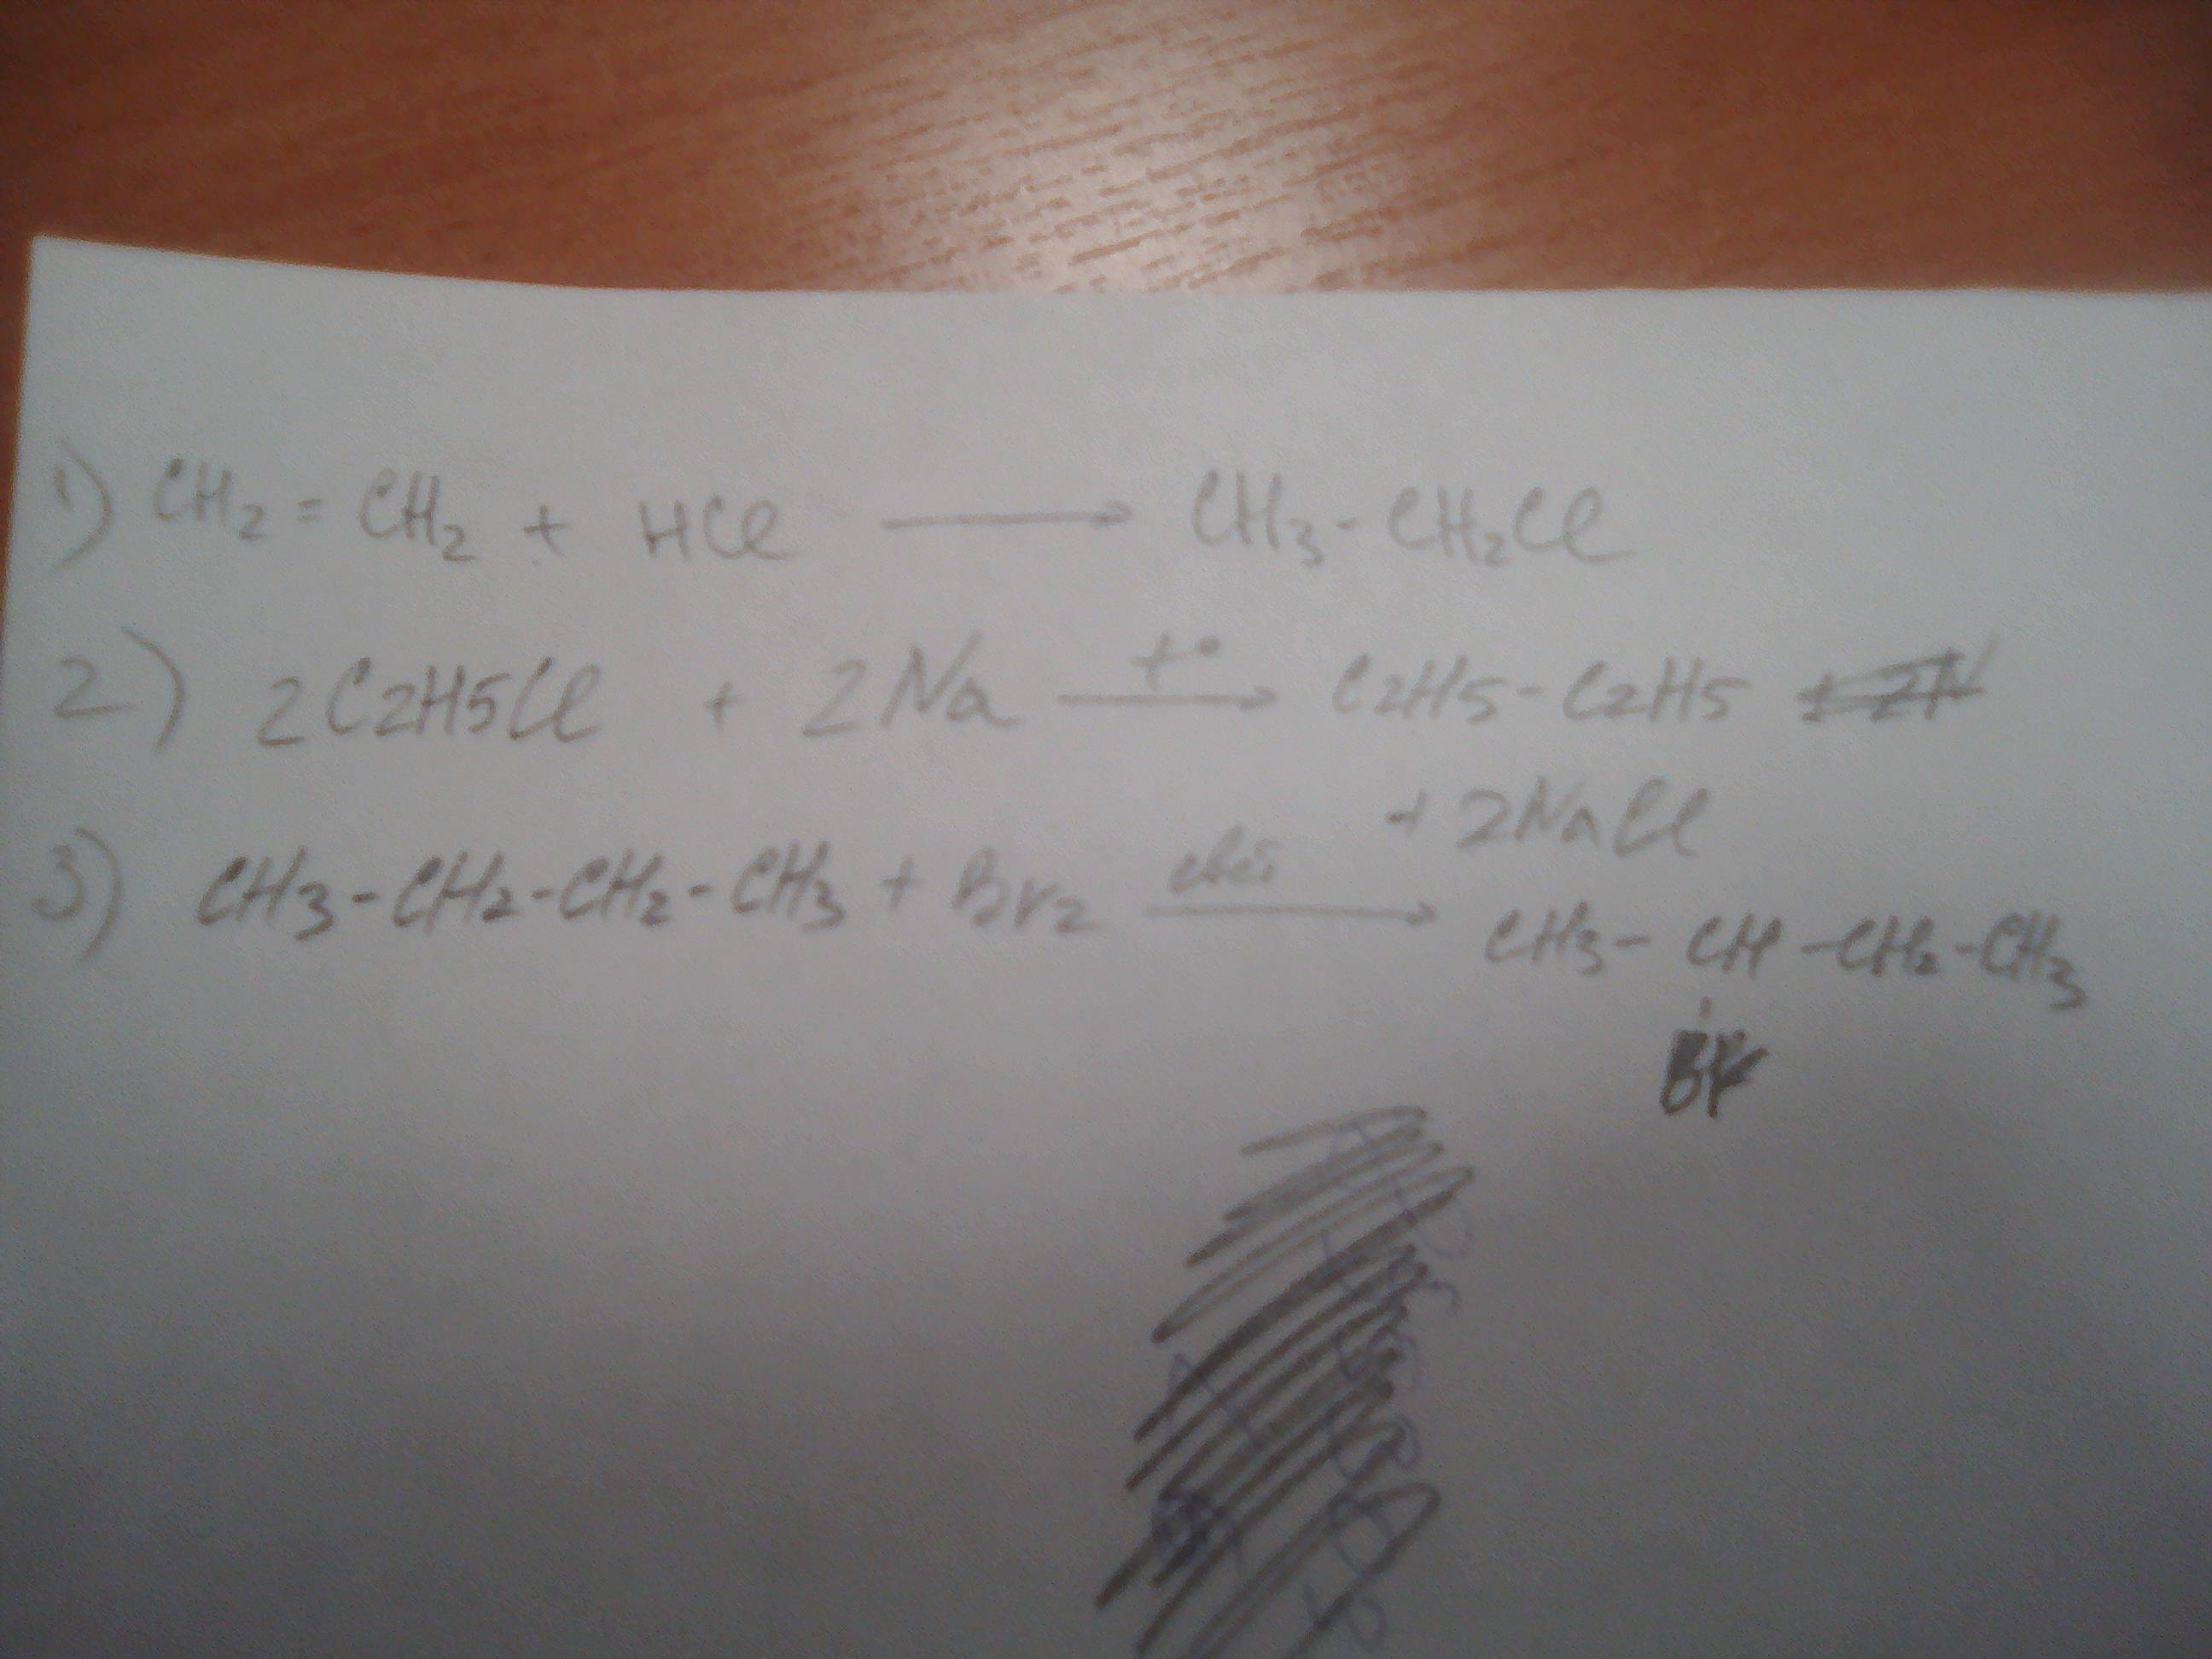 1) CH2 = CH2 + HCl ⟶ CH3 - CH2Cl
2) 2C2H5Cl + 2Na t° ⟶ C2H5 - C2H5
+ 2NaCl
3) CH3-CH2-CH2-CH3 + Br2 свет ⟶
CH3 - CH - CH2 - CH3
Br